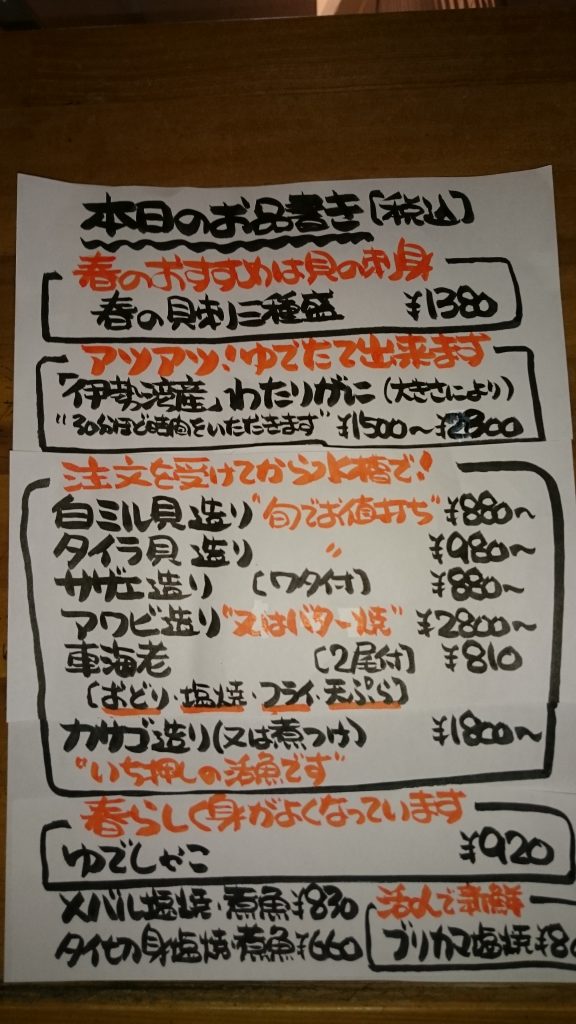 本日のお品書き[税込]
春のおすすめは貝の刺身
春の貝刺三種盛 ¥1380
アツアツ!ゆでたて出来ます
「伊勢湾産」わたりがに(大きさにより)
"30分ほど時間をいただきます" ¥1500～¥2300
注文を受けてから水槽で!
白ミル貝造り"旬でお値打ち" ¥880～
タイラ貝造り 〃 ¥980～
サザエ造り [ワタ付] ¥880～
アワビ造り"又はバター焼" ¥2800～
車海老 [2尾付] ¥810
[おどり・塩焼・フライ・天ぷら]
カサゴ造り(又は煮つけ) ¥1800～
"いち押しの活魚です"
春らしく身がよくなっています
ゆでしゃこ ¥920
メバル塩焼・煮魚¥830
活〆で新鮮
タイ切の身塩焼・煮魚¥660
ブリカマ塩焼